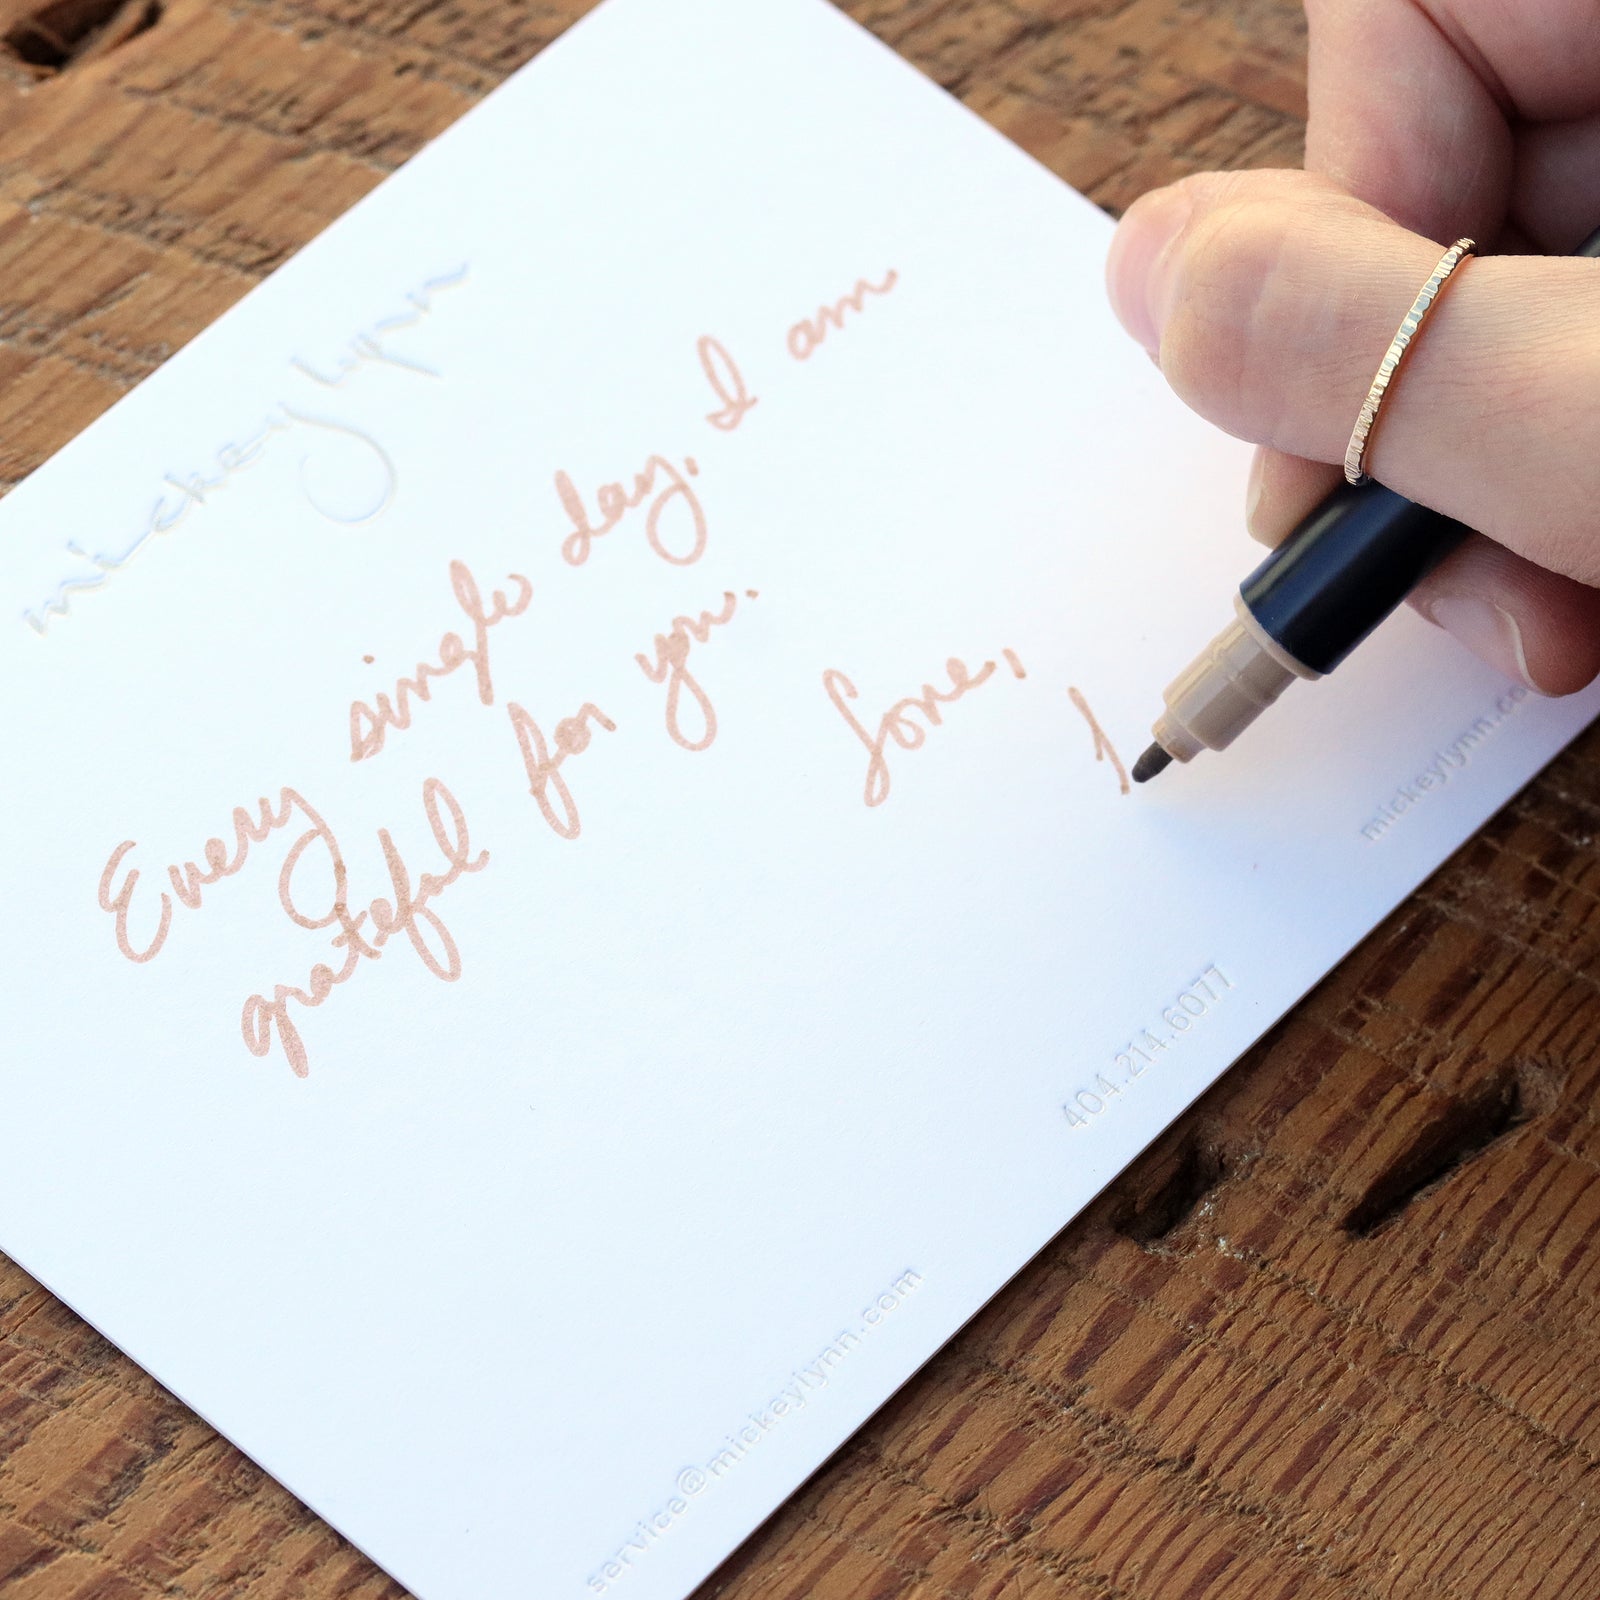 mickey lynn
Every single day, I am
grateful for you.
Love,
mickeylynn.co
404.214.6077
service@mickeylynn.com